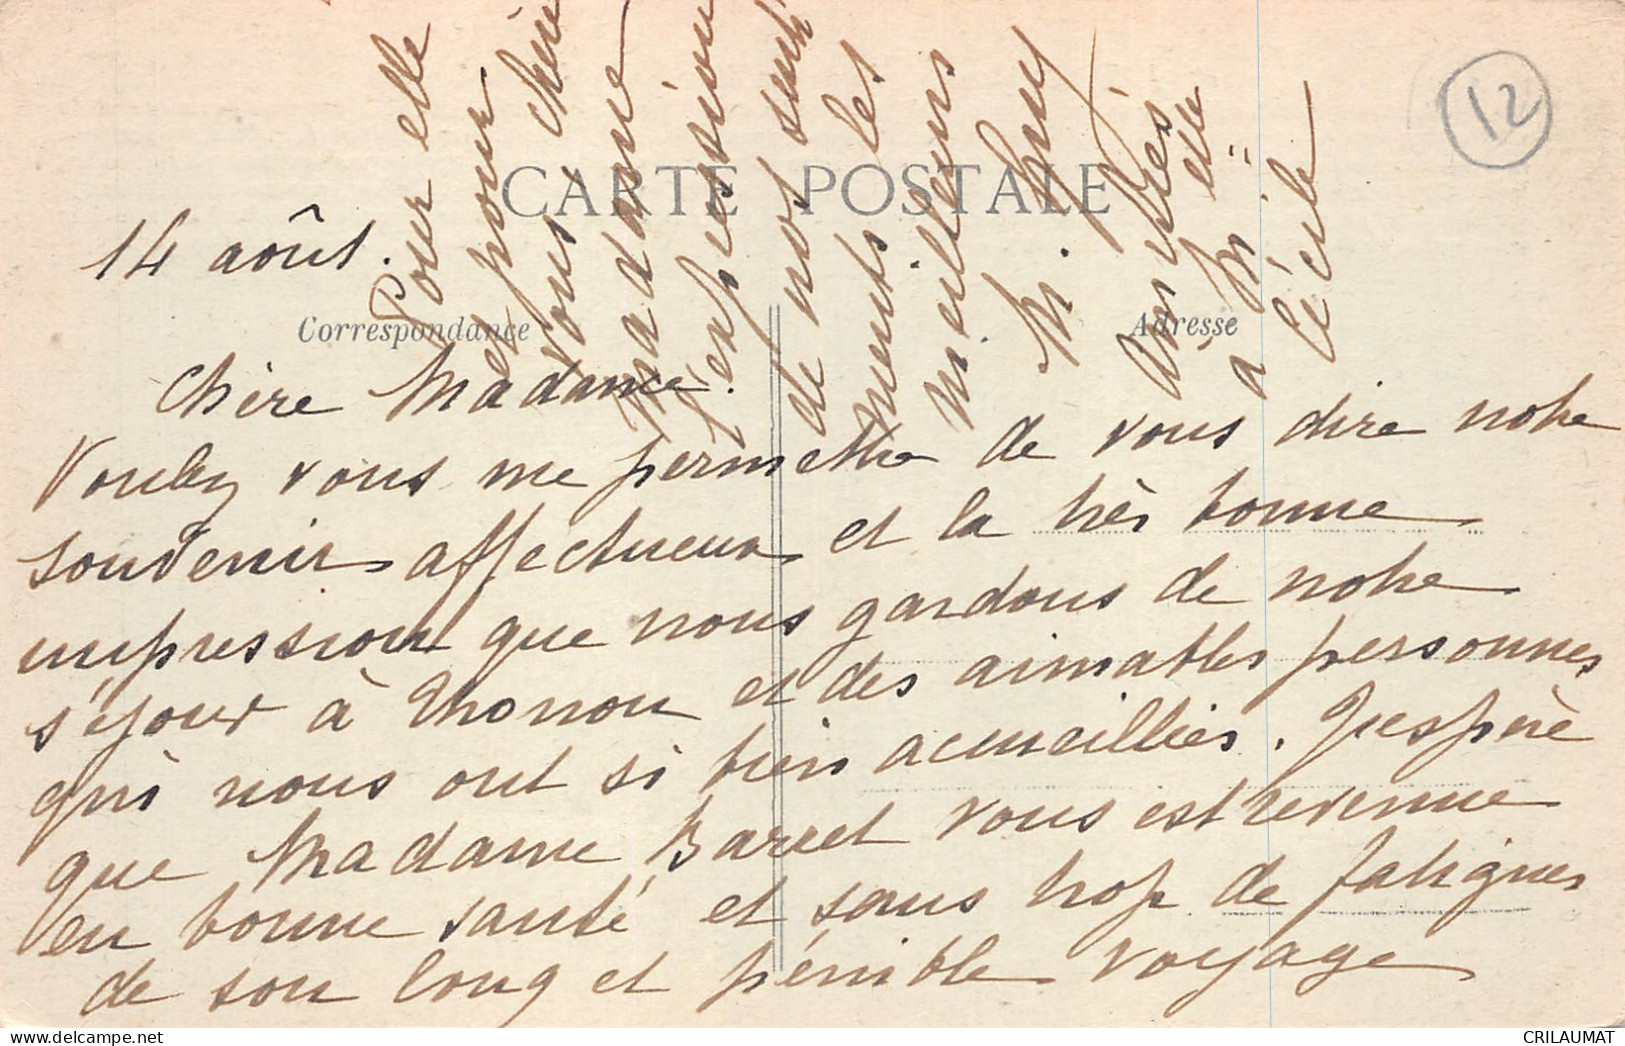 12
CARTE POSTALE
14 août.
Correspondance
Adresse
Chère Madame.
Voulez vous me permettre de vous dire notre
souvenir affectueux et la très bonne
impression que nous gardons de notre
séjour à Thonon et des aimables personnes
qui nous ont si bien accueillies. J'espère
que Madame Barret vous est revenue
en bonne santé et sans trop de fatigues
de son long et pénible voyage
Pour elle
et pour
vous, chère
Madame
l'expression
de nos senti
ments les
meilleurs
M.
Amitiés
à Melle
Cécile
CRILAUMAT